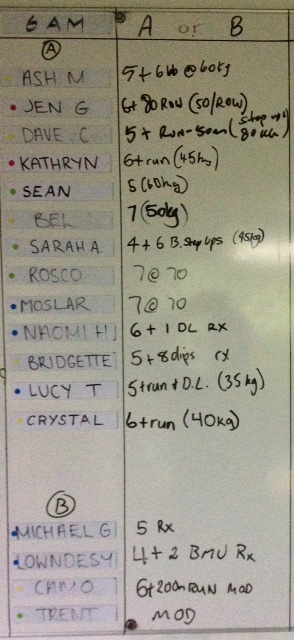 6 AM A or B
A
ASH M 5+6bb @60kg
JEN G 6+ 80 ROW (50/ROW)
DAVE C 5 + RUN-50m (step ups 80kg)
KATHRYN 6+run (45kg)
SEAN 5 (60kg)
BEL 7 (50kg)
SARAH A. 4+6 B. Step UPS (45kg)
ROSCO 7@70
MOSLAR 7@70
NAOMI H 6+1 DL RX
BRIDGETTE 5+8dips rx
LUCY T 5+run+D.L. (35kg)
CRYSTAL 6+run (40kg)
B
MICHAEL G 5 Rx
LOWNDESY 4+2 BMU Rx
CAMO 6+200m RUN MOD
TRENT MOD